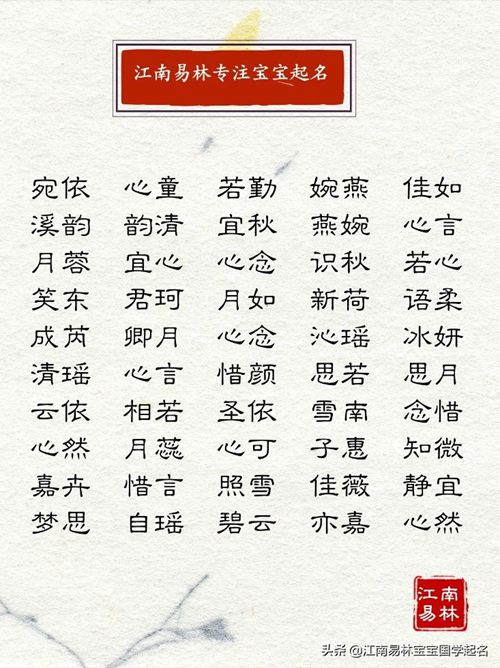 江南易林专注宝宝起名
宛依 心童 若勤 婉燕 佳如
溪韵 韵清 宜秋 燕婉 心言
月蓉 宜心 心念 识秋 若心
笑东 君珂 月如 新荷 语柔
成芮 卿月 心念 沁瑶 冰妍
清瑶 心言 惜颜 思若 思月
云依 相若 圣依 雪南 念惜
心然 月蕊 心可 子惠 知微
嘉卉 惜言 照雪 佳薇 静宜
梦思 自瑶 碧云 亦嘉 心然
江南
易林
头条 @江南易林宝宝国学起名